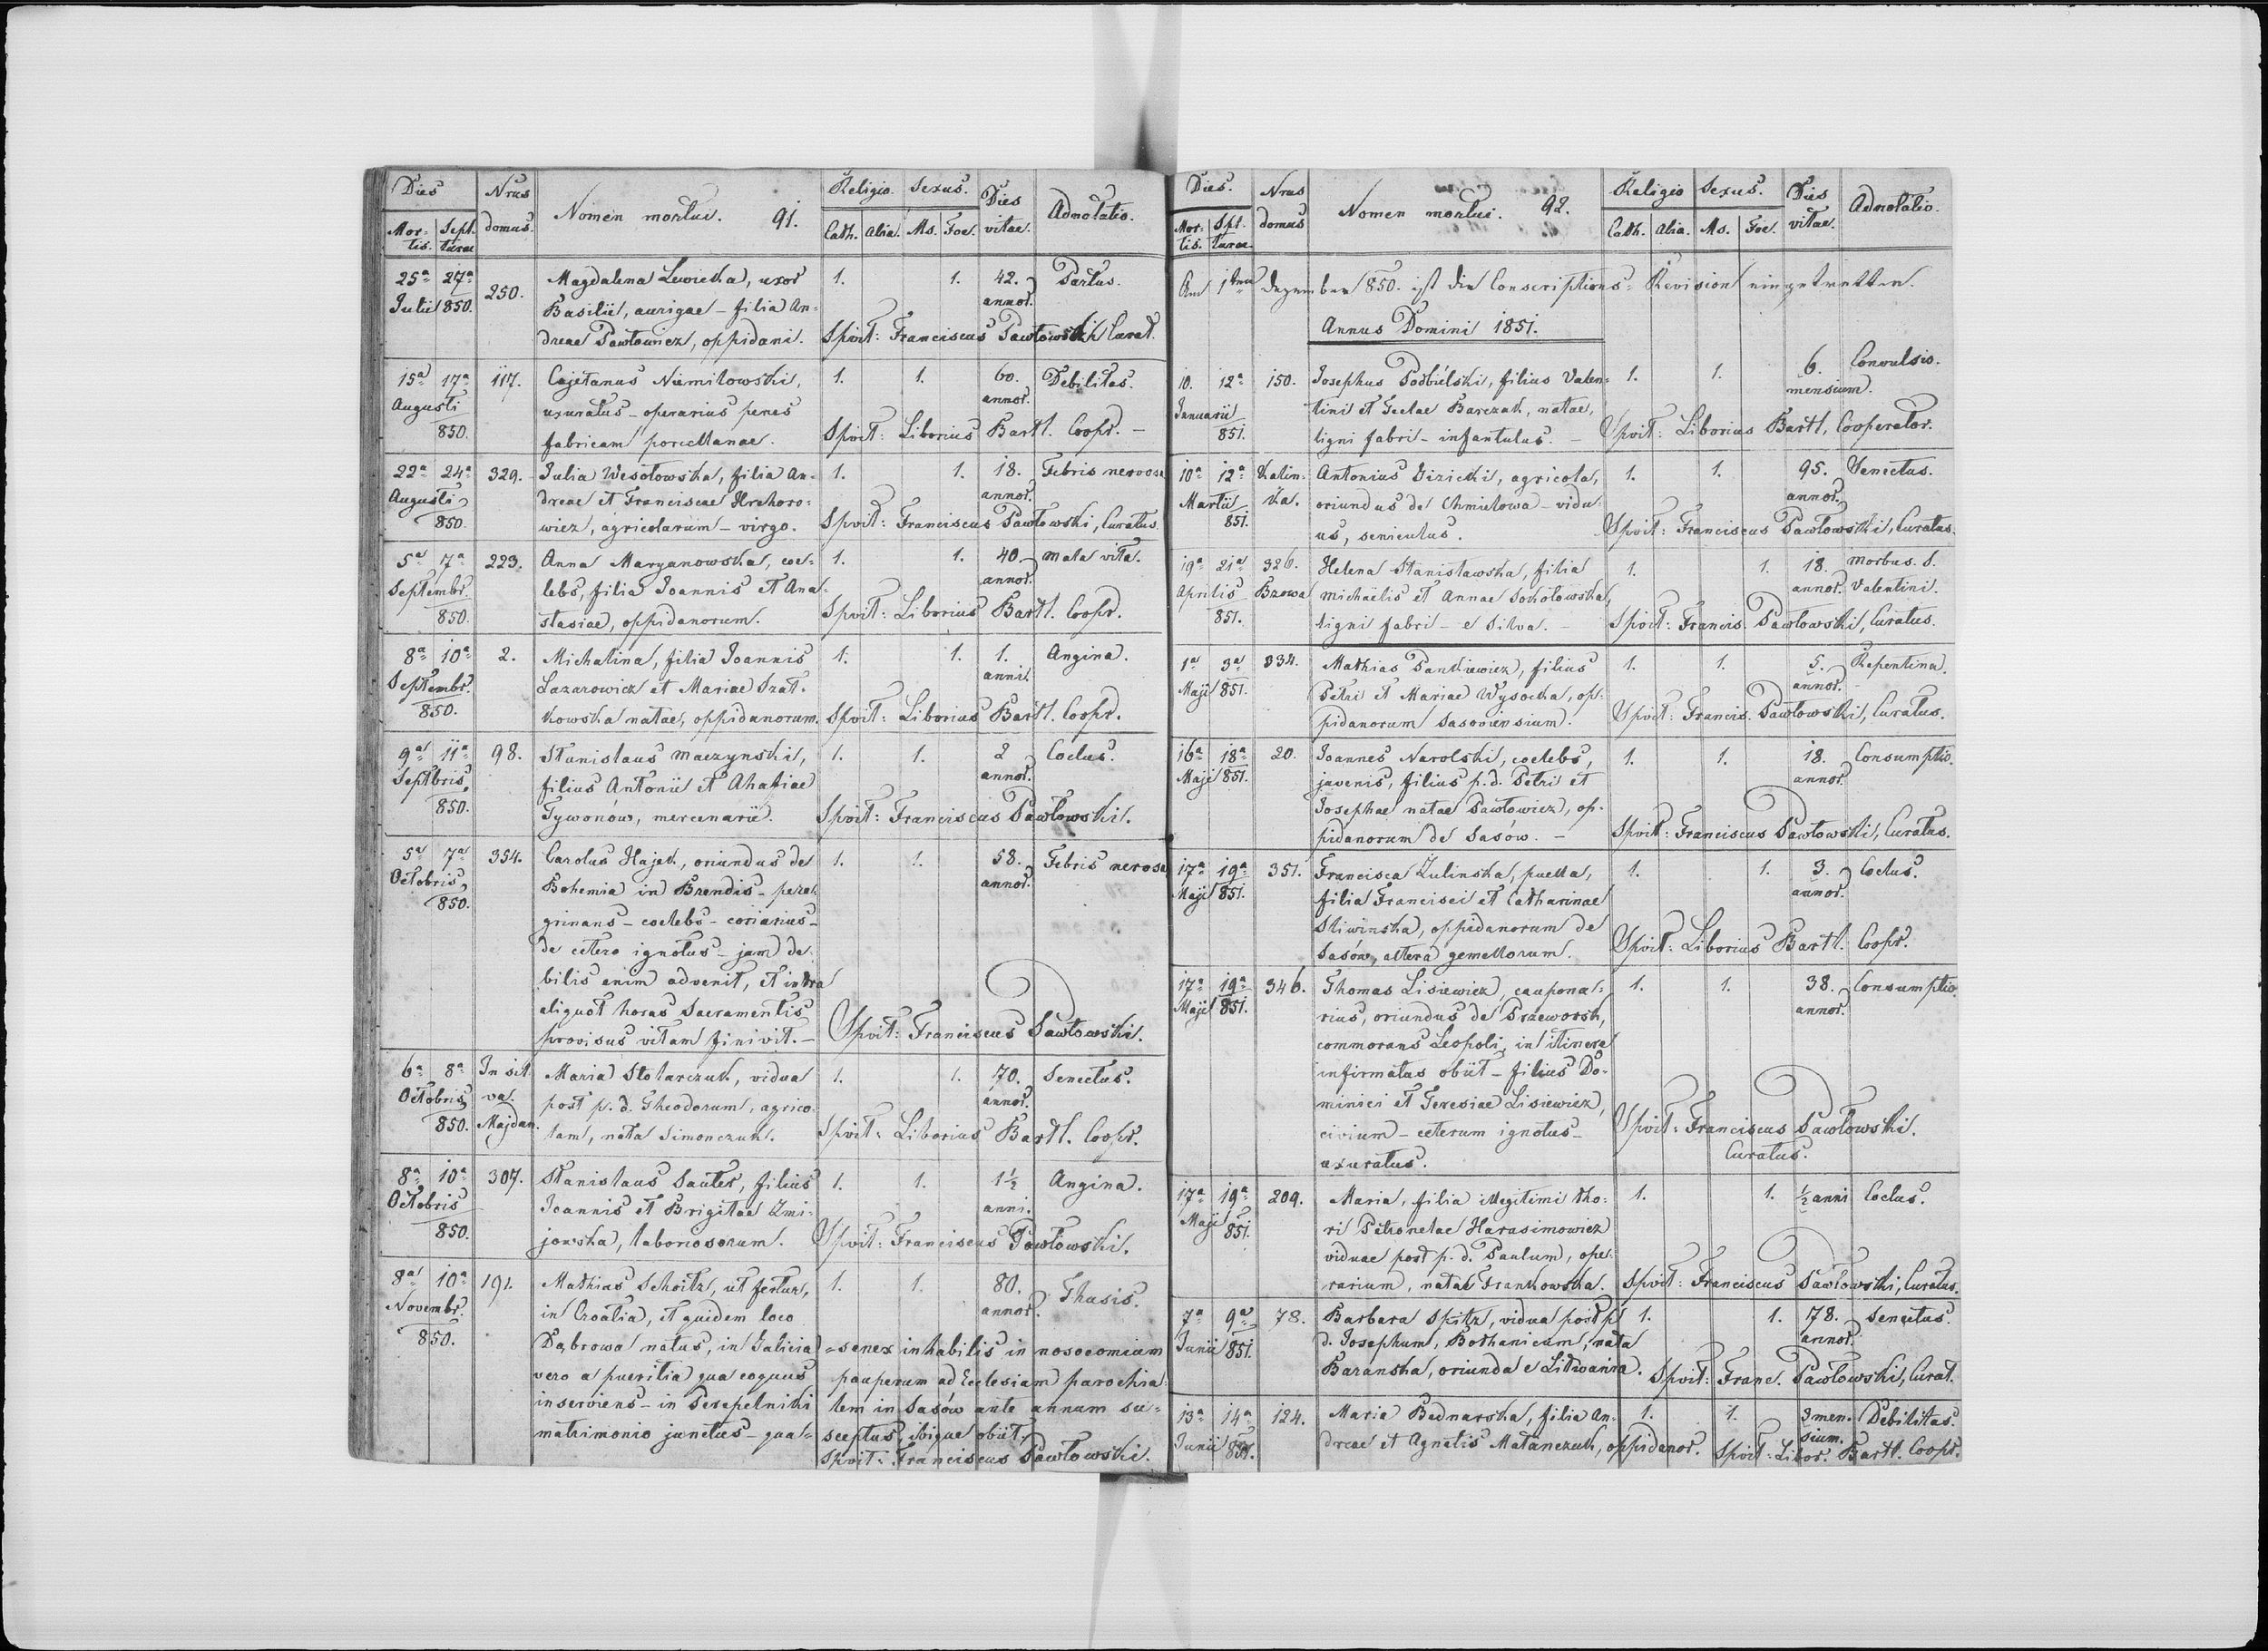 Dies Nrus Nomen mortui. 91. Religio. Sexus. Dies Adnotatio.
Mortis. Septurae domus. Cath. Alia. Ms. Foe. vitae.
25a 27a 250. Magdalena Lewicka, uxor 1. 1. 42. Partus.
Julii 850. Basilii, aurigae – filia An- annor.
dreae Pawłowicz, oppidani. Spvit: Franciscus Pawłowski Curat.
15a 17a 117. Cajetanus Niemiłowski, 1. 1. 60. Debilitas.
Augusti uxuratus – operarius penes annor.
850. fabricam porcellanae. Spvit: Liborius Bartl. Coopr. –
22a 24a 329. Julia Wesołowska, filia An- 1. 1. 18. Febris nervosa
Augusti dreae et Franciscae Hrehoro- annor.
850. wicz, agricolarum – virgo. Spvit: Franciscus Pawłowski, Curatus.
5a 7a 223. Anna Maryanowska, coe- 1. 1. 40. mala vita.
Septembr. lebs, filia Joannis et Ana- annor.
850. stasiae, oppidanorum. Spvit: Liborius Bartl. Coopr.
8a 10a 2. Michalina, filia Joannis 1. 1. 1. Angina.
Septembr. Lazarowicz et Mariae Szat- anni.
850. kowska natae, oppidanorum. Spvit: Liborius Bartl. Coopr.
9a 11a 98. Stanislaus Maczynski, 1. 1. 2 Coclus.
Septbris filius Antonii et Ahafiae annor.
850. Tywonów, mercenarii. Spvit: Franciscus Pawłowski.
5a 7a 354. Carolus Hajek, oriundus de 1. 1. 58. Febris nerosa
Octobris Bohemia in Brendis – pere- annor.
850. grinans – coelebs – coriarius –
de cetero ignotus – jam de-
bilis enim advenit, et intra
aliquot horas Sacramentis
provisus vitam finivit. – Spvit: Franciscus Pawłowski.
6a 8a In sil- Maria Stolarczuk, vidua 1. 1. 70. Senectus.
Octobris va. post p. d. Theodorum, agrico- annor.
850. Majdan. lam, nata Simonczuk. Spvit: Liborius Bartl. Coopr.
8a 10a 307. Stanislaus Sauter, filius 1. 1. 1½ Angina.
Octobris Joannis et Brigitae Zmi- anni.
850. jowska, laboriosorum. Spvit: Franciscus Pawłowski.
8a 10a 191. Mathias Schoitz, ut fertur, 1. 1. 80. Thasis.
Novembr. in Croatia, et quidem loco annor.
850. Dąbrowa natus, in Galicia – senex inhabilis in nosocomium
vero a pueritia qua coquus pauperum ad Ecclesiam parochia-
inserviens – in Perepelniki lem in Sasów ante annum su-
matrimonio junctus – qua- sceptus, ibique obiit.
Spvit: Franciscus Pawłowski.
Dies. Nrus Nomen mortui. 92. Religio Sexus. Dies Adnotatio.
Mortis. Spt. turae domus Cath. Alia. Ms. Foe. vitae.
Am 1ten Dezember 850. ist die Conscriptions-Revision eingetretten.
Annus Domini 1851.
10. 12a 150. Josephus Podbielski, filius Valen- 1. 1. 6. Convulsio.
Januarii tini et Teclae Barczak, natae, mensium.
851. ligni fabri – infantulus. – Spvit: Liborius Bartl, Cooperator.
10a 12a Kalin- Antonius Gizicki, agricola, 1. 1. 95. Senectus.
Martii ka. oriundus de Chmielowa – vidu- annor.
851. us, seniculus. Spvit: Franciscus Pawłowski, Curatus.
19a 21a 326. Helena Stanisławska, filia 1. 1. 18. morbus. S.
Aprilis Bzowa Michaelis et Annae Sokołowska, annor. Valentini.
851. ligni fabri – e Silva. – Spvit: Francis. Pawłowski, Curatus.
1a 3a 334. Mathias Pankiewicz, filius 1. 1. 5. Repentina.
Maji 851. Petri et Mariae Wysocka, op- annor.
pidanorum Sasoviensium. Spvit: Francis. Pawłowski, Curatus.
16a 18a 20. Joannes Narolski, coelebs, 1. 1. 18. Consumptio.
Maji 851. juvenis, filius p. d. Petri et annor.
Josephae natae Pawłowicz, op-
pidanorum de Sasów. – Spvit: Franciscus Pawłowski, Curatus.
17a 19a 351. Francisca Zulinska, puella, 1. 1. 3. Coclus.
Maji 851. filia Francisci et Catharinae annor.
Sliwinska, oppidanorum de
Sasów, altera gemellorum. Spvit: Liborius Bartl. Coopr.
17a 19a 346. Thomas Lisiewicz, caupona- 1. 1. 38. Consumptio.
Maji 851. rius, oriundus de Przeworsk, annor.
commorans Leopoli, in itinere
infirmatus obiit – filius Do-
minici et Teresiae Lisiewicz,
civium – ceterum ignotus – Spvit: Franciscus Pawłowski.
uxuratus. Curatus.
17a 19a 209. Maria, filia illegitimi tho- 1. 1. ½ anni Coclus.
Maji 851. ri Petronelae Harasimowicz
viduae post p. d. Paulum, ope-
rarium, natae Frankowska. Spvit: Franciscus Pawłowski, Curatus.
7a 9a 78. Barbara Spitz, vidua post p. 1. 1. 78. Senectus.
Junii 851. d. Josephum, Bothanicum, nata annor.
Baranska, oriunda e Litwania. Spvit: Franc. Pawłowski, Curat.
13a 14a 124. Maria Bednarska, filia An- 1. 1. 3 men- Debilitas.
Junii 851. dreae et Agnetis Malanczuk, oppidanor. sium. Spvit: Libor. Bartl. Coopr.